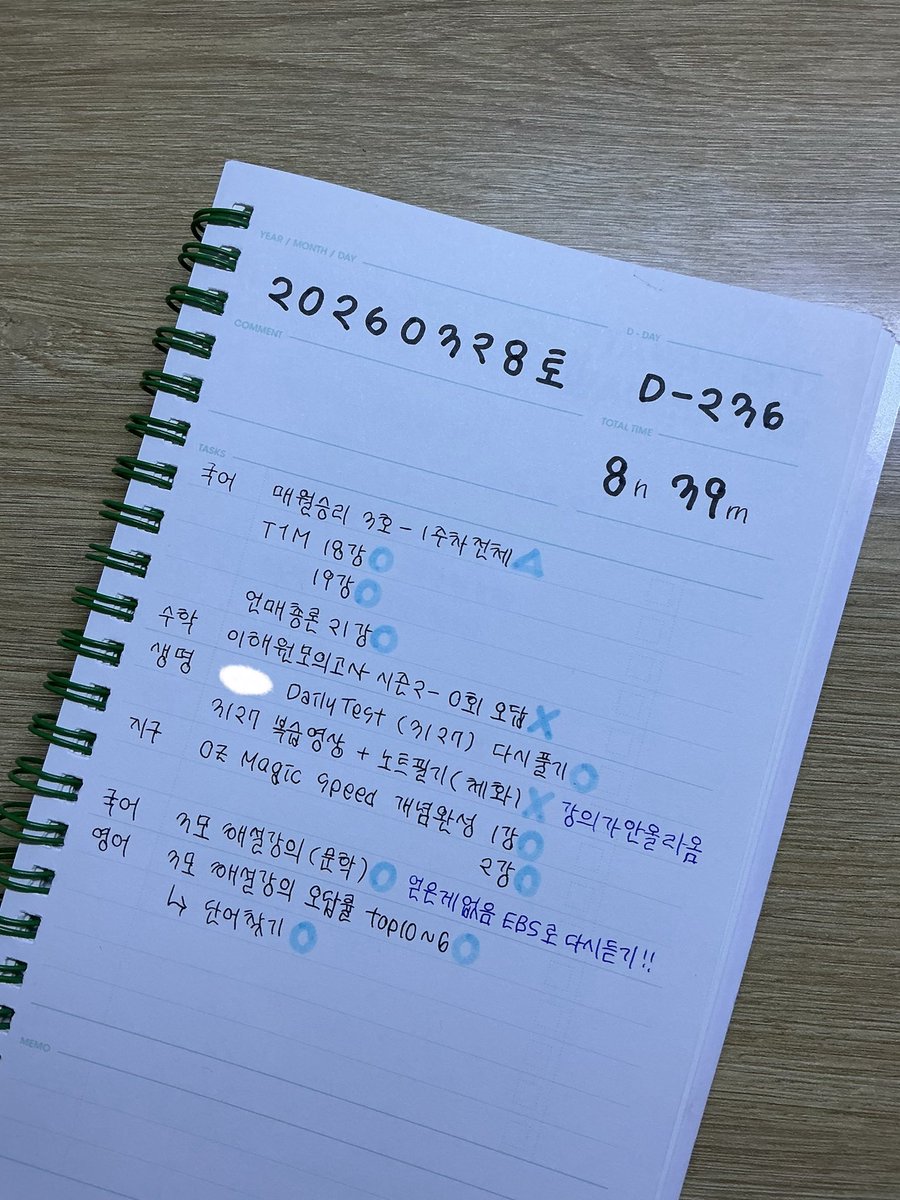 YEAR / MONTH / DAY
20260328토
D - DAY
D-236
COMMENT
TOTAL TIME
8h 39m
TASKS
국어 매월승리 3호 - 1주차 전체 △
T1M 18강 O
19강 O
언매총론 21강 O
수학 이해원모의고사 시즌2 - 0회 오답 X
생명 Daily Test (3/27) 다시 풀기 O
3/27 복습영상 + 노트필기(체화) X 강의가안올라옴
지구 OZ Magic speed 개념완성 1강 O
2강 O
국어 3모 해설강의(문학) O 얻은게없음 EBS로 다시듣기!!
영어 3모 해설강의 오답률 top10~6 O
↳ 단어찾기 O
MEMO